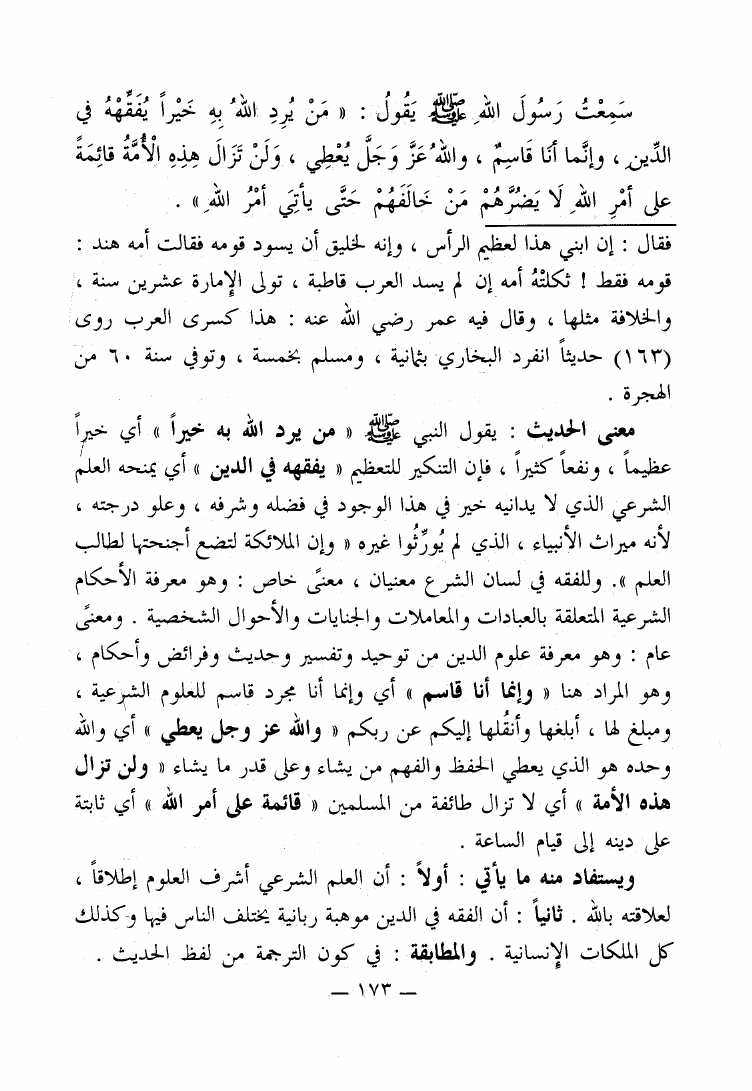 سَمِعْتُ رَسُولَ اللهِ ﷺ يَقُولُ : « مَنْ يُرِدِ اللهُ بِهِ خَيْراً يُفَقِّهْهُ في
الدِّينِ ، وإنَّما أنَا قَاسِمٌ ، واللهُ عَزَّ وَجَلَّ يُعْطِي ، وَلَنْ تَزَالَ هذِهِ الْأُمَّةُ قائِمَةً
على أمْرِ اللهِ لَا يَضُرُّهُمْ مَنْ خَالَفَهُمْ حَتَّى يأتِيَ أمْرُ اللهِ » .
فقال : إن ابني هذا لعظيم الرأس ، وإنه لخليق أن يسود قومه فقالت أمه هند :
قومه فقط ! ثكلتْهُ أمه إن لم يسد العرب قاطبة ، تولى الإمارة عشرين سنة ،
والخلافة مثلها ، وقال فيه عمر رضي الله عنه : هذا كسرى العرب روى
(١٦٣) حديثاً انفرد البخاري بثمانية ، ومسلم بخمسة ، وتوفي سنة ٦٠ من
الهجرة .
معنى الحديث : يقول النبي ﷺ « من يرد الله به خيراً » أي خيراً
عظيماً ، ونفعاً كثيراً ، فإن التنكير للتعظيم « يفقهه في الدين » أي يمنحه العلم
الشرعي الذي لا يدانيه خير في هذا الوجود في فضله وشرفه ، وعلو درجته ،
لأنه ميراث الأنبياء ، الذي لم يُورِّثُوا غيره « وإن الملائكة لتضع أجنحتها لطالب
العلم ». وللفقه في لسان الشرع معنيان ، معنىً خاص : وهو معرفة الأحكام
الشرعية المتعلقة بالعبادات والمعاملات والجنايات والأحوال الشخصية . ومعنىً
عام : وهو معرفة علوم الدين من توحيد وتفسير وحديث وفرائض وأحكام ،
وهو المراد هنا « وإنما أنا قاسم » أي وإنما أنا مجرد قاسم للعلوم الشرعية ،
ومبلغ لها ، أبلغها وأنقُلها إليكم عن ربكم « والله عز وجل يعطي » أي والله
وحده هو الذي يعطي الحفظ والفهم من يشاء وعلى قدر ما يشاء « ولن تزال
هذه الأمة » أي لا تزال طائفة من المسلمين « قائمة على أمر الله » أي ثابتة
على دينه إلى قيام الساعة .
ويستفاد منه ما يأتي : أولاً : أن العلم الشرعي أشرف العلوم إطلاقاً ،
لعلاقته بالله . ثانياً : أن الفقه في الدين موهبة ربانية يختلف الناس فيها وكذلك
كل الملكات الإنسانية . والمطابقة : في كون الترجمة من لفظ الحديث .
— ١٧٣ —